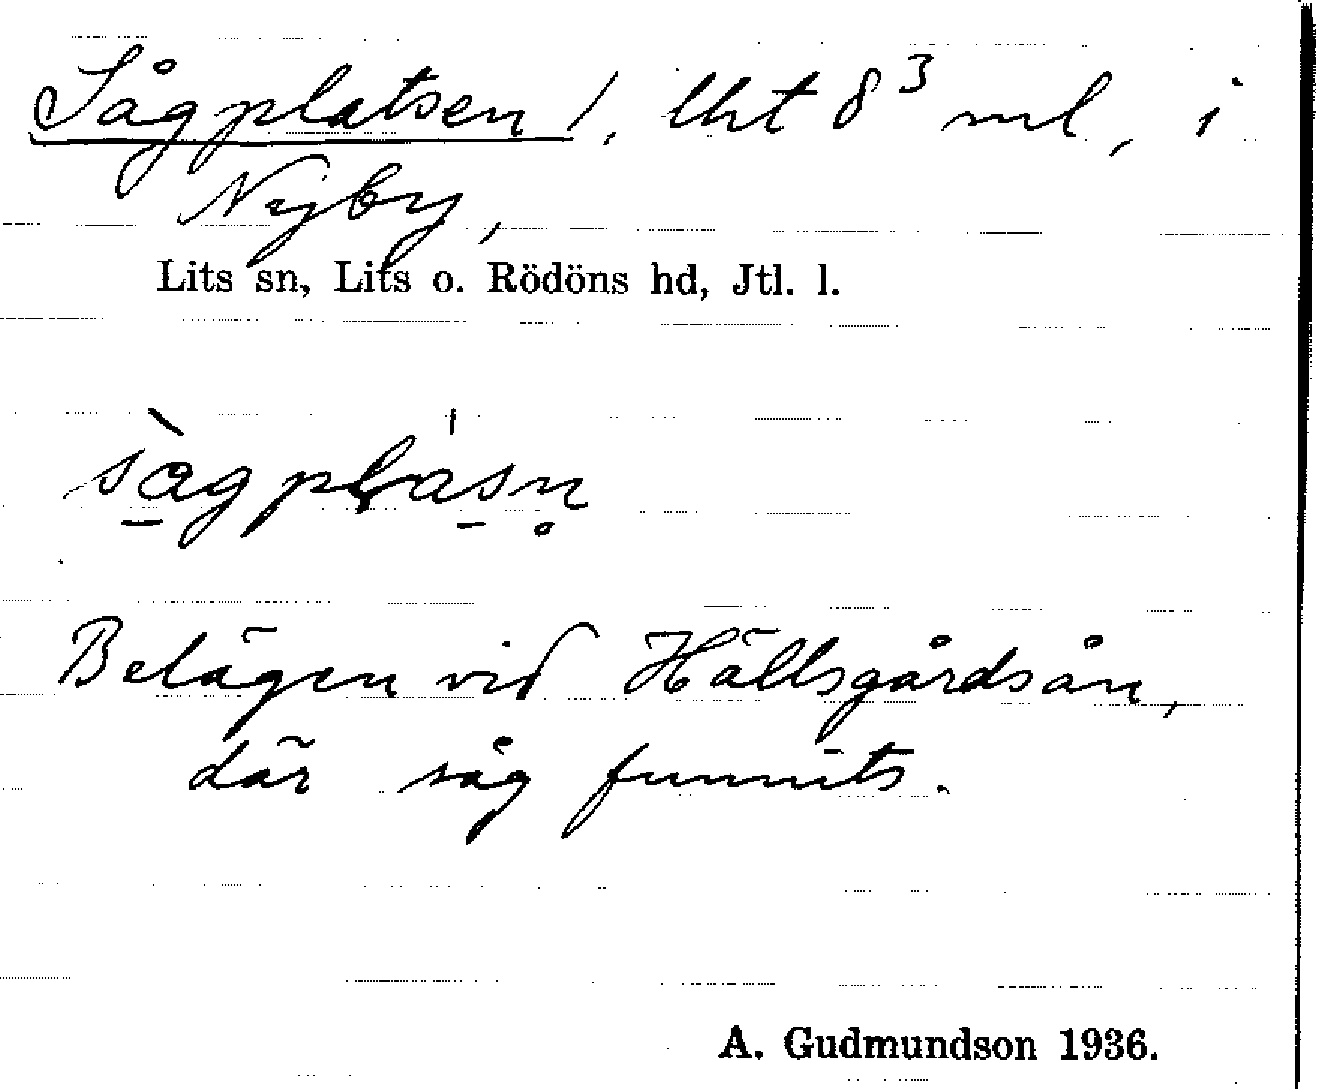 Sågplatsen /, lht 8³ ml, i
Nyby,
Lits sn, Lits o. Rödöns hd, Jtl. l.
Belägen vid Hällsgårdsån,
där såg funnits.
A. Gudmundson 1936.